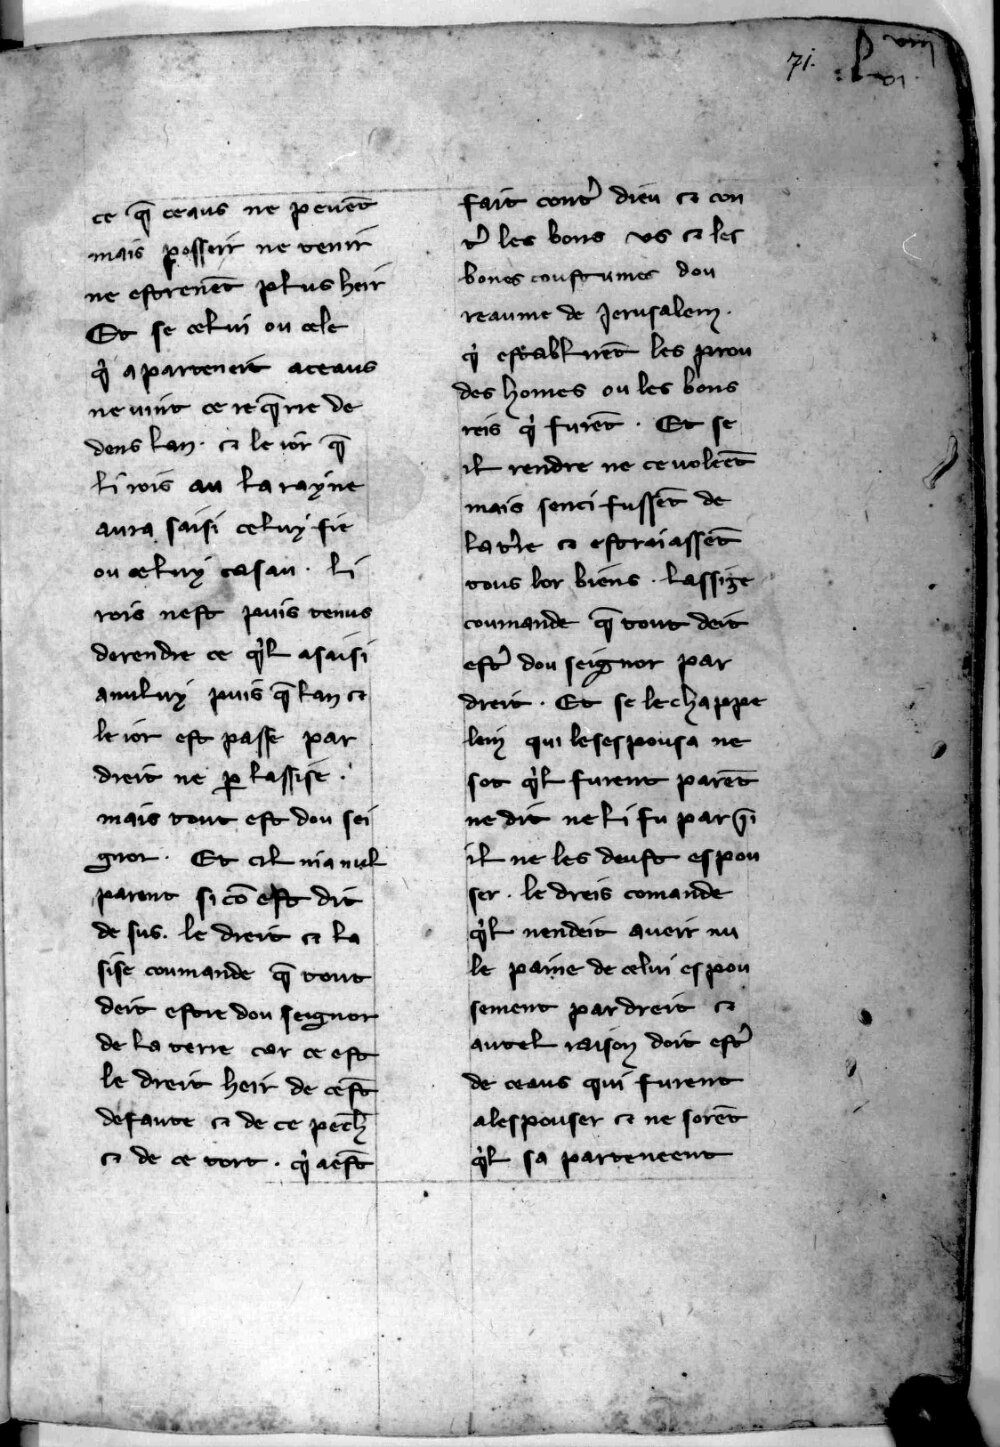 71.
ce q̄ ceaus ne peuēt
mais posseir ne tenir
ne estreńēt plus heir
Et se celui ou cele
q̓ apartenent aceaus
ne vint ce req̄rre de
dens lan. ⁊ le ior q̄
li rois au la rayne
aura saisi celuy fie
ou celuy casau. li
rois nest puis tenus
derendre ce q̓l asaisi
anuluy puis q̄ lan ⁊
le ior est passe par
dreit ne ꝑ lassise.
mais tout est dou sei
gnor. Et cil nia nul
parent si cō est dit
de sus. le dreit ⁊ la
sise coumande q̄ tout
deit estre dou seignor
de la terre car ce est
le dreit heir de cest̄
defaute ⁊ de ce pech̄
⁊ de ce tort. q̓ aest̄
fait cont̓ dieu ⁊ con
t̓ les bons us ⁊ les
bones coustumes dou
reaume de Jerusalem.
q̓ establirēt les prou
des homes ou les bons
reis q̓ furēt. Et se
il rendre ne ce voleēt
mais senci fussēt de
la t̓re ⁊ estraiassēt
tous lor biens. lassize
coumande q̄ tout deit
est̓ dou seignor par
dreit. Et se le chappe
lein qui les espousa ne
sot q̓l furent parēt
ne dit ne li fu par q̄i
il ne les deust espou
ser. le dreis comande
q̓l nendeit aveir nu
le paine de celui espou
sement par dreit ⁊
autel raison doit est̓
de ceaus qui furent
alespouser ⁊ ne sorēt
q̓l sa parteneent